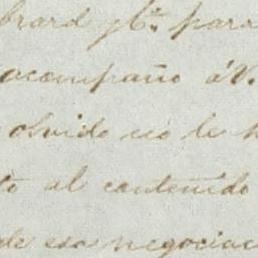 brard y Ca. para
acompaño á V.
olvido no le h
to al contenido
de esa negociac